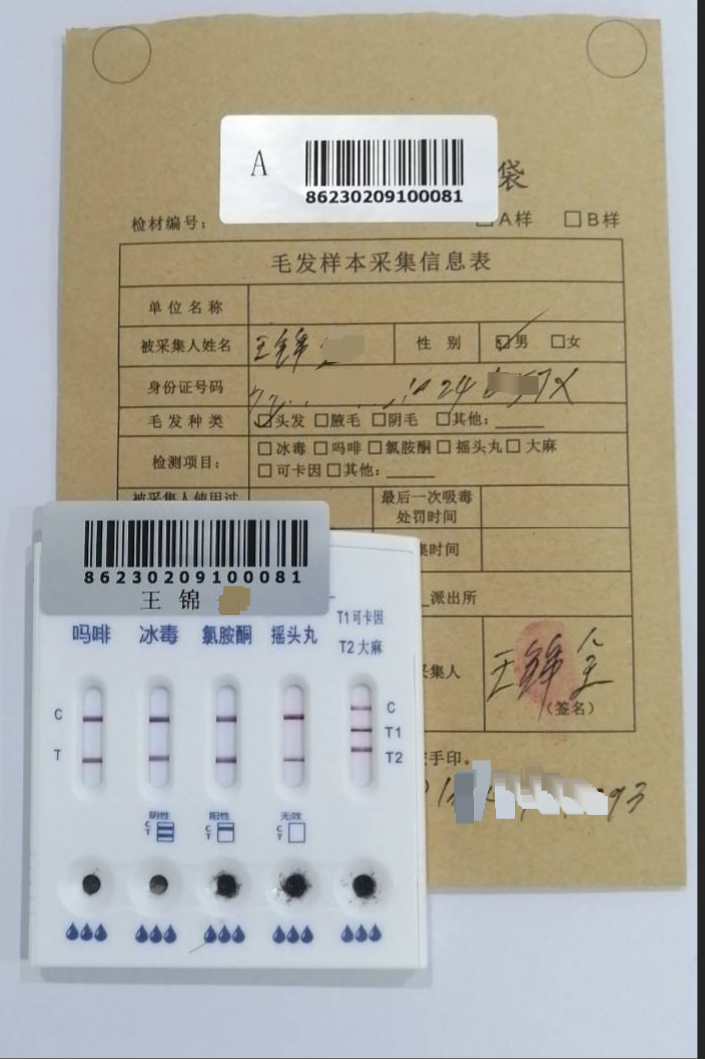 A
86230209100081
袋
检材编号： □A样 □B样
毛发样本采集信息表
单位名称
被采集人姓名 王锦 性别 ☑男 □女
身份证号码
毛发种类 □头发 □腋毛 □阴毛 □其他：
检测项目： □冰毒 □吗啡 □氯胺酮 □摇头丸 □大麻
□可卡因 □其他：
被采集人使用过 最后一次吸毒
处罚时间
集时间
派出所
采集人 王锦全
（签名）
手印。
93
86230209100081
王锦
吗啡 冰毒 氯胺酮 摇头丸 T1可卡因
T2大麻
C C
T1
T T2
阴性 阳性 无效
C C C
T T T